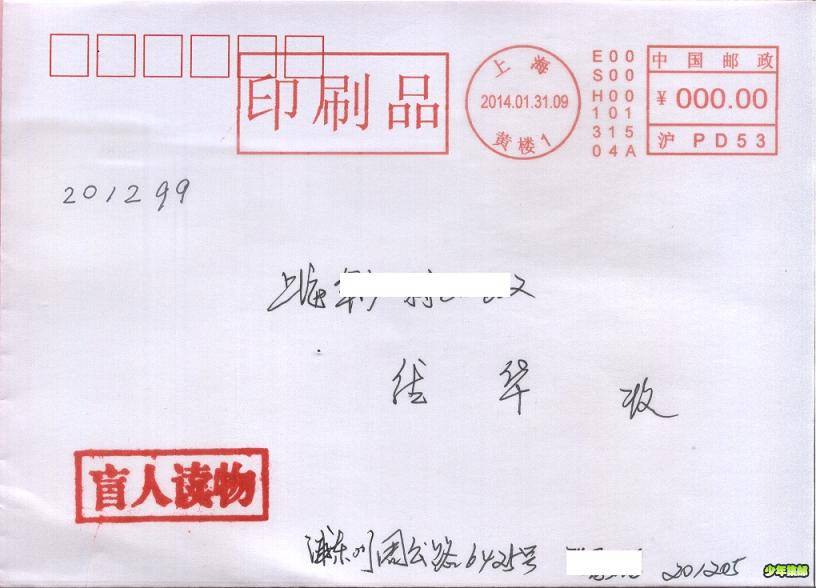 印刷品
上海
2014.01.31.09
黄楼1
E00
S00
H00
101
315
04A
中国邮政
¥ 000.00
沪 PD53
201299
上海
华 收
盲人读物
浦东川周公路6425号
201205
少年集邮